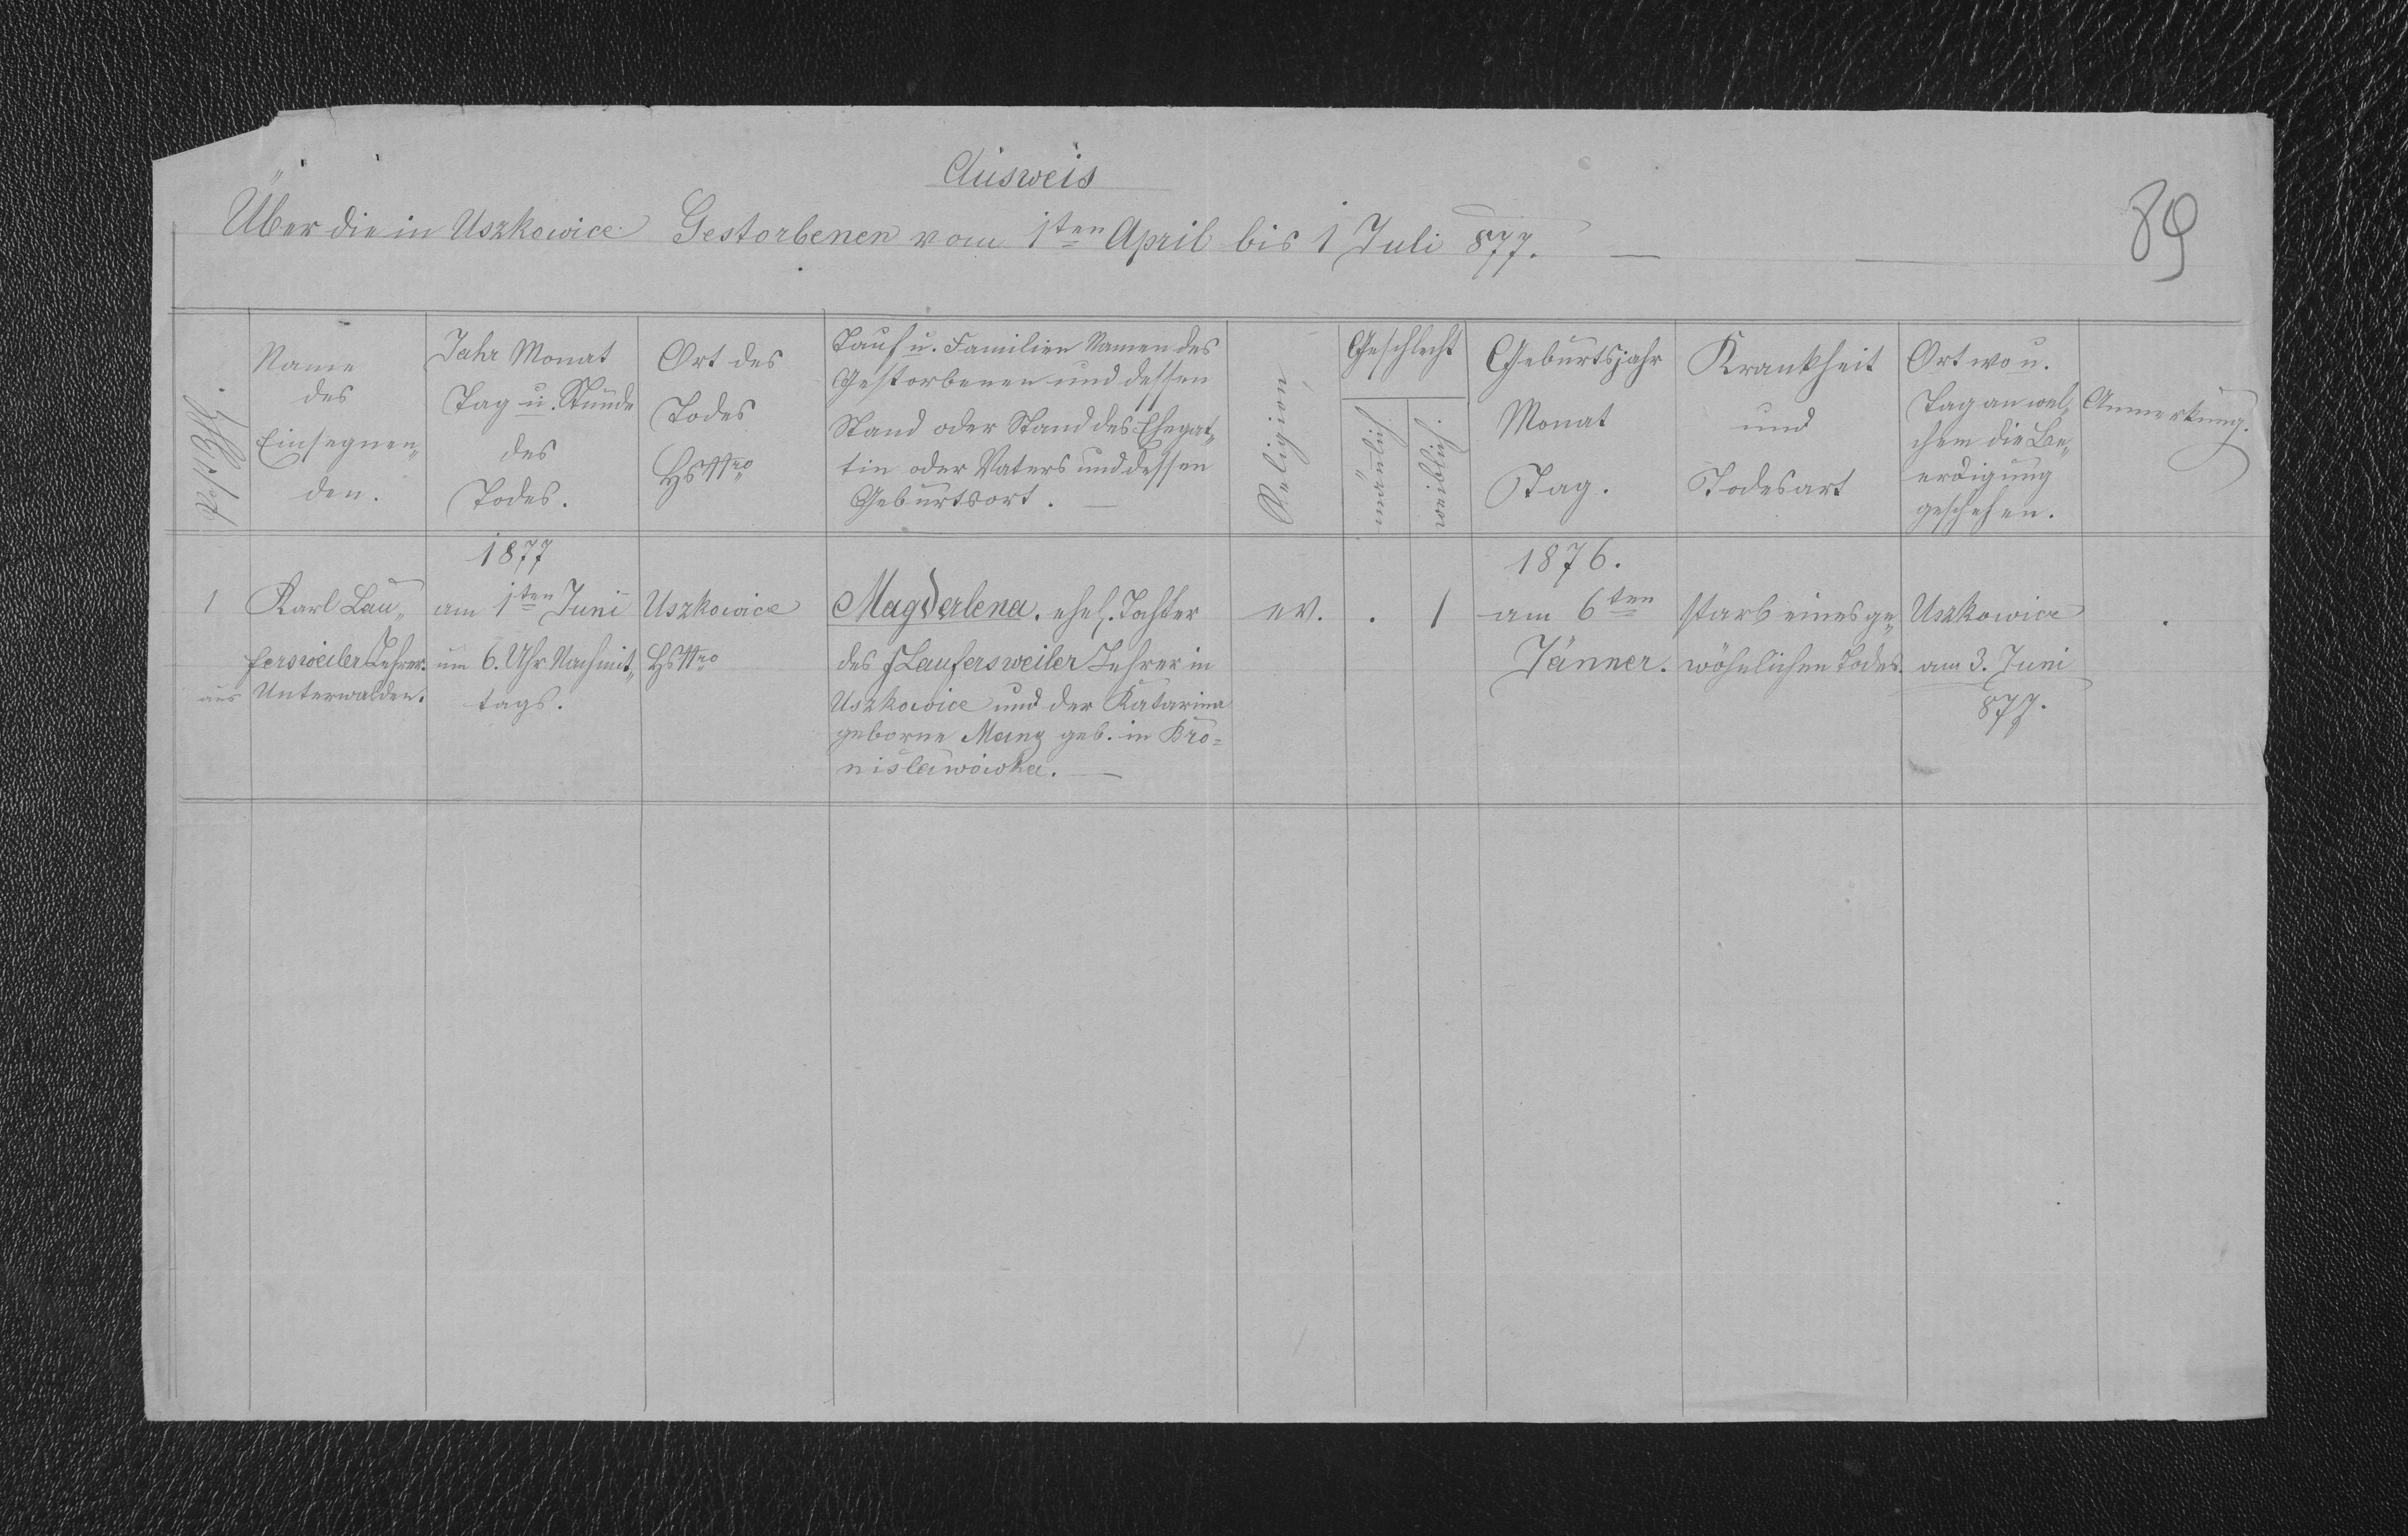 Ausweis
Über die in Uszkowice Gestorbenen vom 1ten April bis 1 Juli 877.
89
Name
des
Einsegnen„
den.
Jahr Monat
Tag u. Stunde
des
Todes.
Ort des
Todes
HsNro
Tauf u. Familien Namen des
Gestorbenen und dessen
Stand oder Stand des Ehegat„
tin oder Vaters und dessen
Geburtsort. —
Religion
Geschlecht
mänlich
weiblich.
Geburtsjahr
Monat
Tag.
Krankheit
und
Todesart
Ort wo u.
Tag an wel„
chem die Be„
erdigung
geschehen.
Anmerkung.
1
Karl Lau„
fersweiler Lehrer.
aus Unterwalden.
1877
am 1ten Juni
um 6. Uhr Nachmit„
tags.
Uszkowice
HsNro
Magdalena. ehel. Tochter
des Laufersweiler Lehrer in
Uszkowice und der Katarina
geborne Mang geb. in Bro=
nislawówka. —
ev.
.
1
1876.
am 6ten
Jänner.
starb eines ge„
wöhnlichen Todes.
Uszkowice
am 3. Juni
877.
.